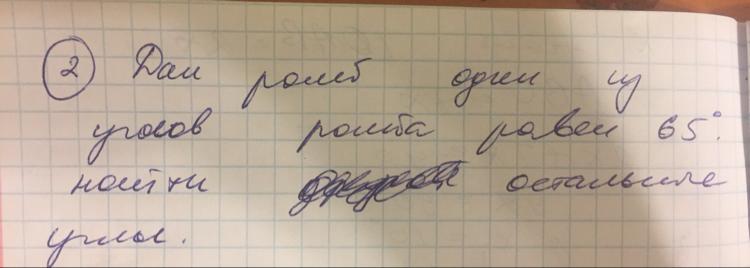 2 Дан ромб один из
углов ромба равен 65°.
найти остальные
углы.